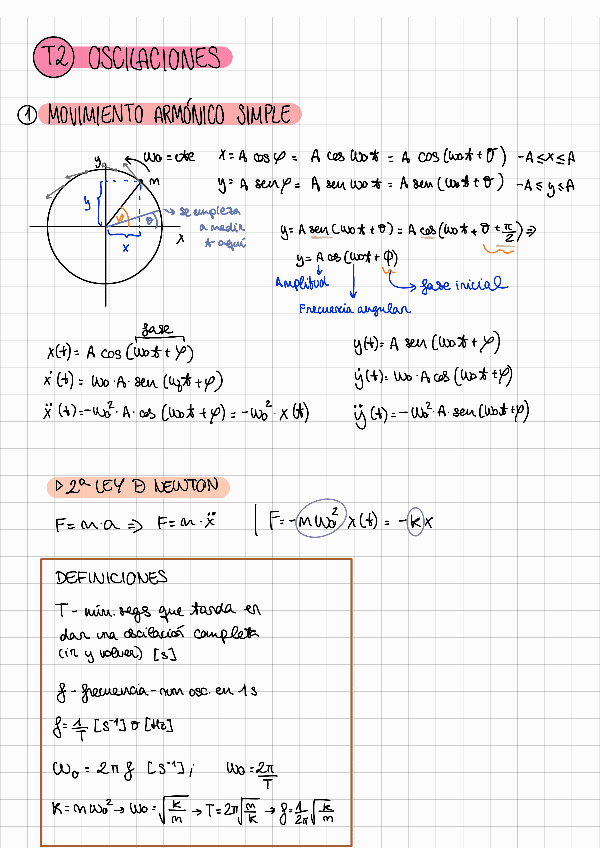 T2 OSCILACIONES
① MOVIMIENTO ARMÓNICO SIMPLE
y
ω₀ = cte
m
y
φ
θ
x
x
se empieza
a medir
t aquí
x = A cos φ = A cos ω₀t = A cos (ω₀t + θ) -A ≤ x ≤ A
y = A sen φ = A sen ω₀t = A sen (ω₀t + θ) -A ≤ y ≤ A
y = A sen (ω₀t + θ) = A cos (ω₀t + θ + π/2) ⇒
y = A cos (ω₀t + φ)
Amplitud
fase inicial
Frecuencia angular
fase
x(t) = A cos (ω₀t + φ)
ẋ(t) = ω₀ · A · sen (ω₀t + φ)
ẍ(t) = -ω₀² · A · cos (ω₀t + φ) = -ω₀² · x(t)
y(t) = A sen (ω₀t + φ)
ẏ(t) = ω₀ · A cos (ω₀t + φ)
ÿ(t) = -ω₀² · A · sen (ω₀t + φ)
▷ 2ª LEY D NEWTON
F = m·a ⇒ F = m·ẍ | F = -mω₀² x(t) = -k x
DEFINICIONES
T - mín. segs que tarda en
dar una oscilación completa
(ir y volver) [s]
f - frecuencia - num osc. en 1 s
f = 1/T [s⁻¹] o [Hz]
ω₀ = 2π f [s⁻¹] ; ω₀ = 2π/T
K = mω₀² → ω₀ = √(k/m) → T = 2π√(m/k) → f = 1/2π √(k/m)